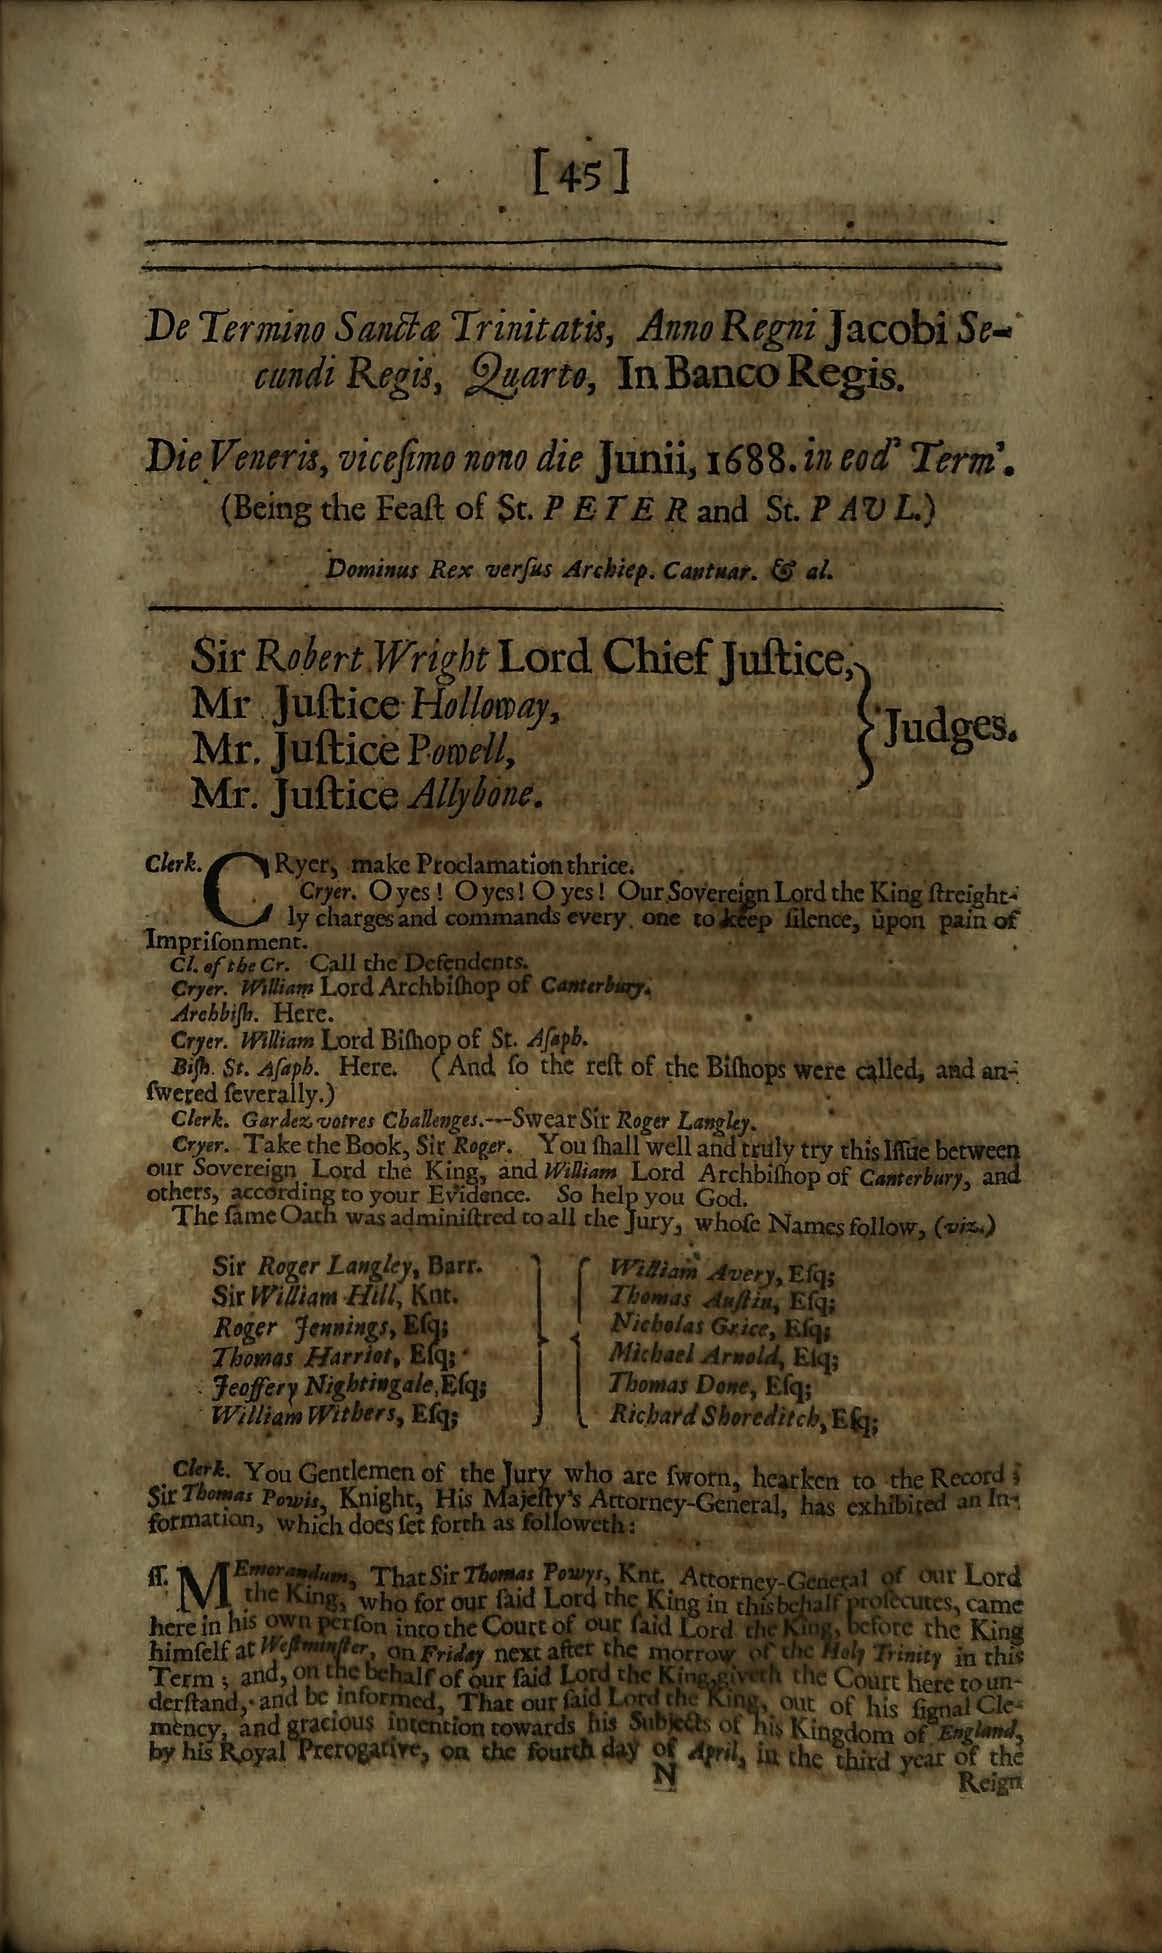 [ 45 ]
De Termino Sanctæ Trinitatis, Anno Regni Jacobi Se-
cundi Regis, Quarto, In Banco Regis.
Die Veneris, viceſimo nono die Junii, 1688. in eod' Term'.
(Being the Feaſt of St. PETER and St. PAUL.)
Dominus Rex verſus Archiep. Cantuar. & al.
Sir Robert Wright Lord Chief Juſtice,
Mr Juſtice Holloway,
Mr. Juſtice Powell,
Mr. Juſtice Allybone.
} Judges.
Clerk. CRyer, make Proclamation thrice.
Cryer. O yes! O yes! O yes! Our Sovereign Lord the King ſtreight-
ly charges and commands every one to keep ſilence, upon pain of
Impriſonment.
Cl. of the Cr. Call the Defendents.
Cryer. William Lord Archbiſhop of Canterbury.
Archbiſh. Here.
Cryer. William Lord Biſhop of St. Aſaph.
Biſh. St. Aſaph. Here. (And ſo the reſt of the Biſhops were called, and an-
ſwered ſeverally.)
Clerk. Gardez votres Challenges.---Swear Sir Roger Langley.
Cryer. Take the Book, Sir Roger. You ſhall well and truly try this Iſſue between
our Sovereign Lord the King, and William Lord Archbiſhop of Canterbury, and
others, according to your Evidence. So help you God.
The ſame Oath was adminiſtred to all the Jury, whoſe Names follow, (viz.)
Sir Roger Langley, Barr.
Sir William Hill, Knt.
Roger Jennings, Eſq;
Thomas Harriot, Eſq;
Jeoffery Nightingale, Eſq;
William Withers, Eſq;
William Avery, Eſq;
Thomas Auſtin, Eſq;
Nicholas Grice, Eſq;
Michael Arnold, Eſq;
Thomas Done, Eſq;
Richard Shoreditch, Eſq;
Clerk. You Gentlemen of the Jury who are ſworn, hearken to the Record;
Sir Thomas Powis, Knight, His Majeſty's Attorney-General, has exhibited an In-
formation, which does ſet forth as followeth:
ſſ. MEmorandum, That Sir Thomas Powys, Knt. Attorney-General of our Lord
the King, who for our ſaid Lord the King in this behalf proſecutes, came
here in his own perſon into the Court of our ſaid Lord the King, before the King
himſelf at Weſtminſter, on Friday next after the morrow of the Holy Trinity in this
Term; and, on the behalf of our ſaid Lord the King, giveth the Court here to un-
derſtand, and be informed, That our ſaid Lord the King, out of his ſignal Cle-
mency, and gracious intention towards his Subjects of his Kingdom of England,
by his Royal Prerogative, on the fourth day of April, in the third year of the
N
Reign